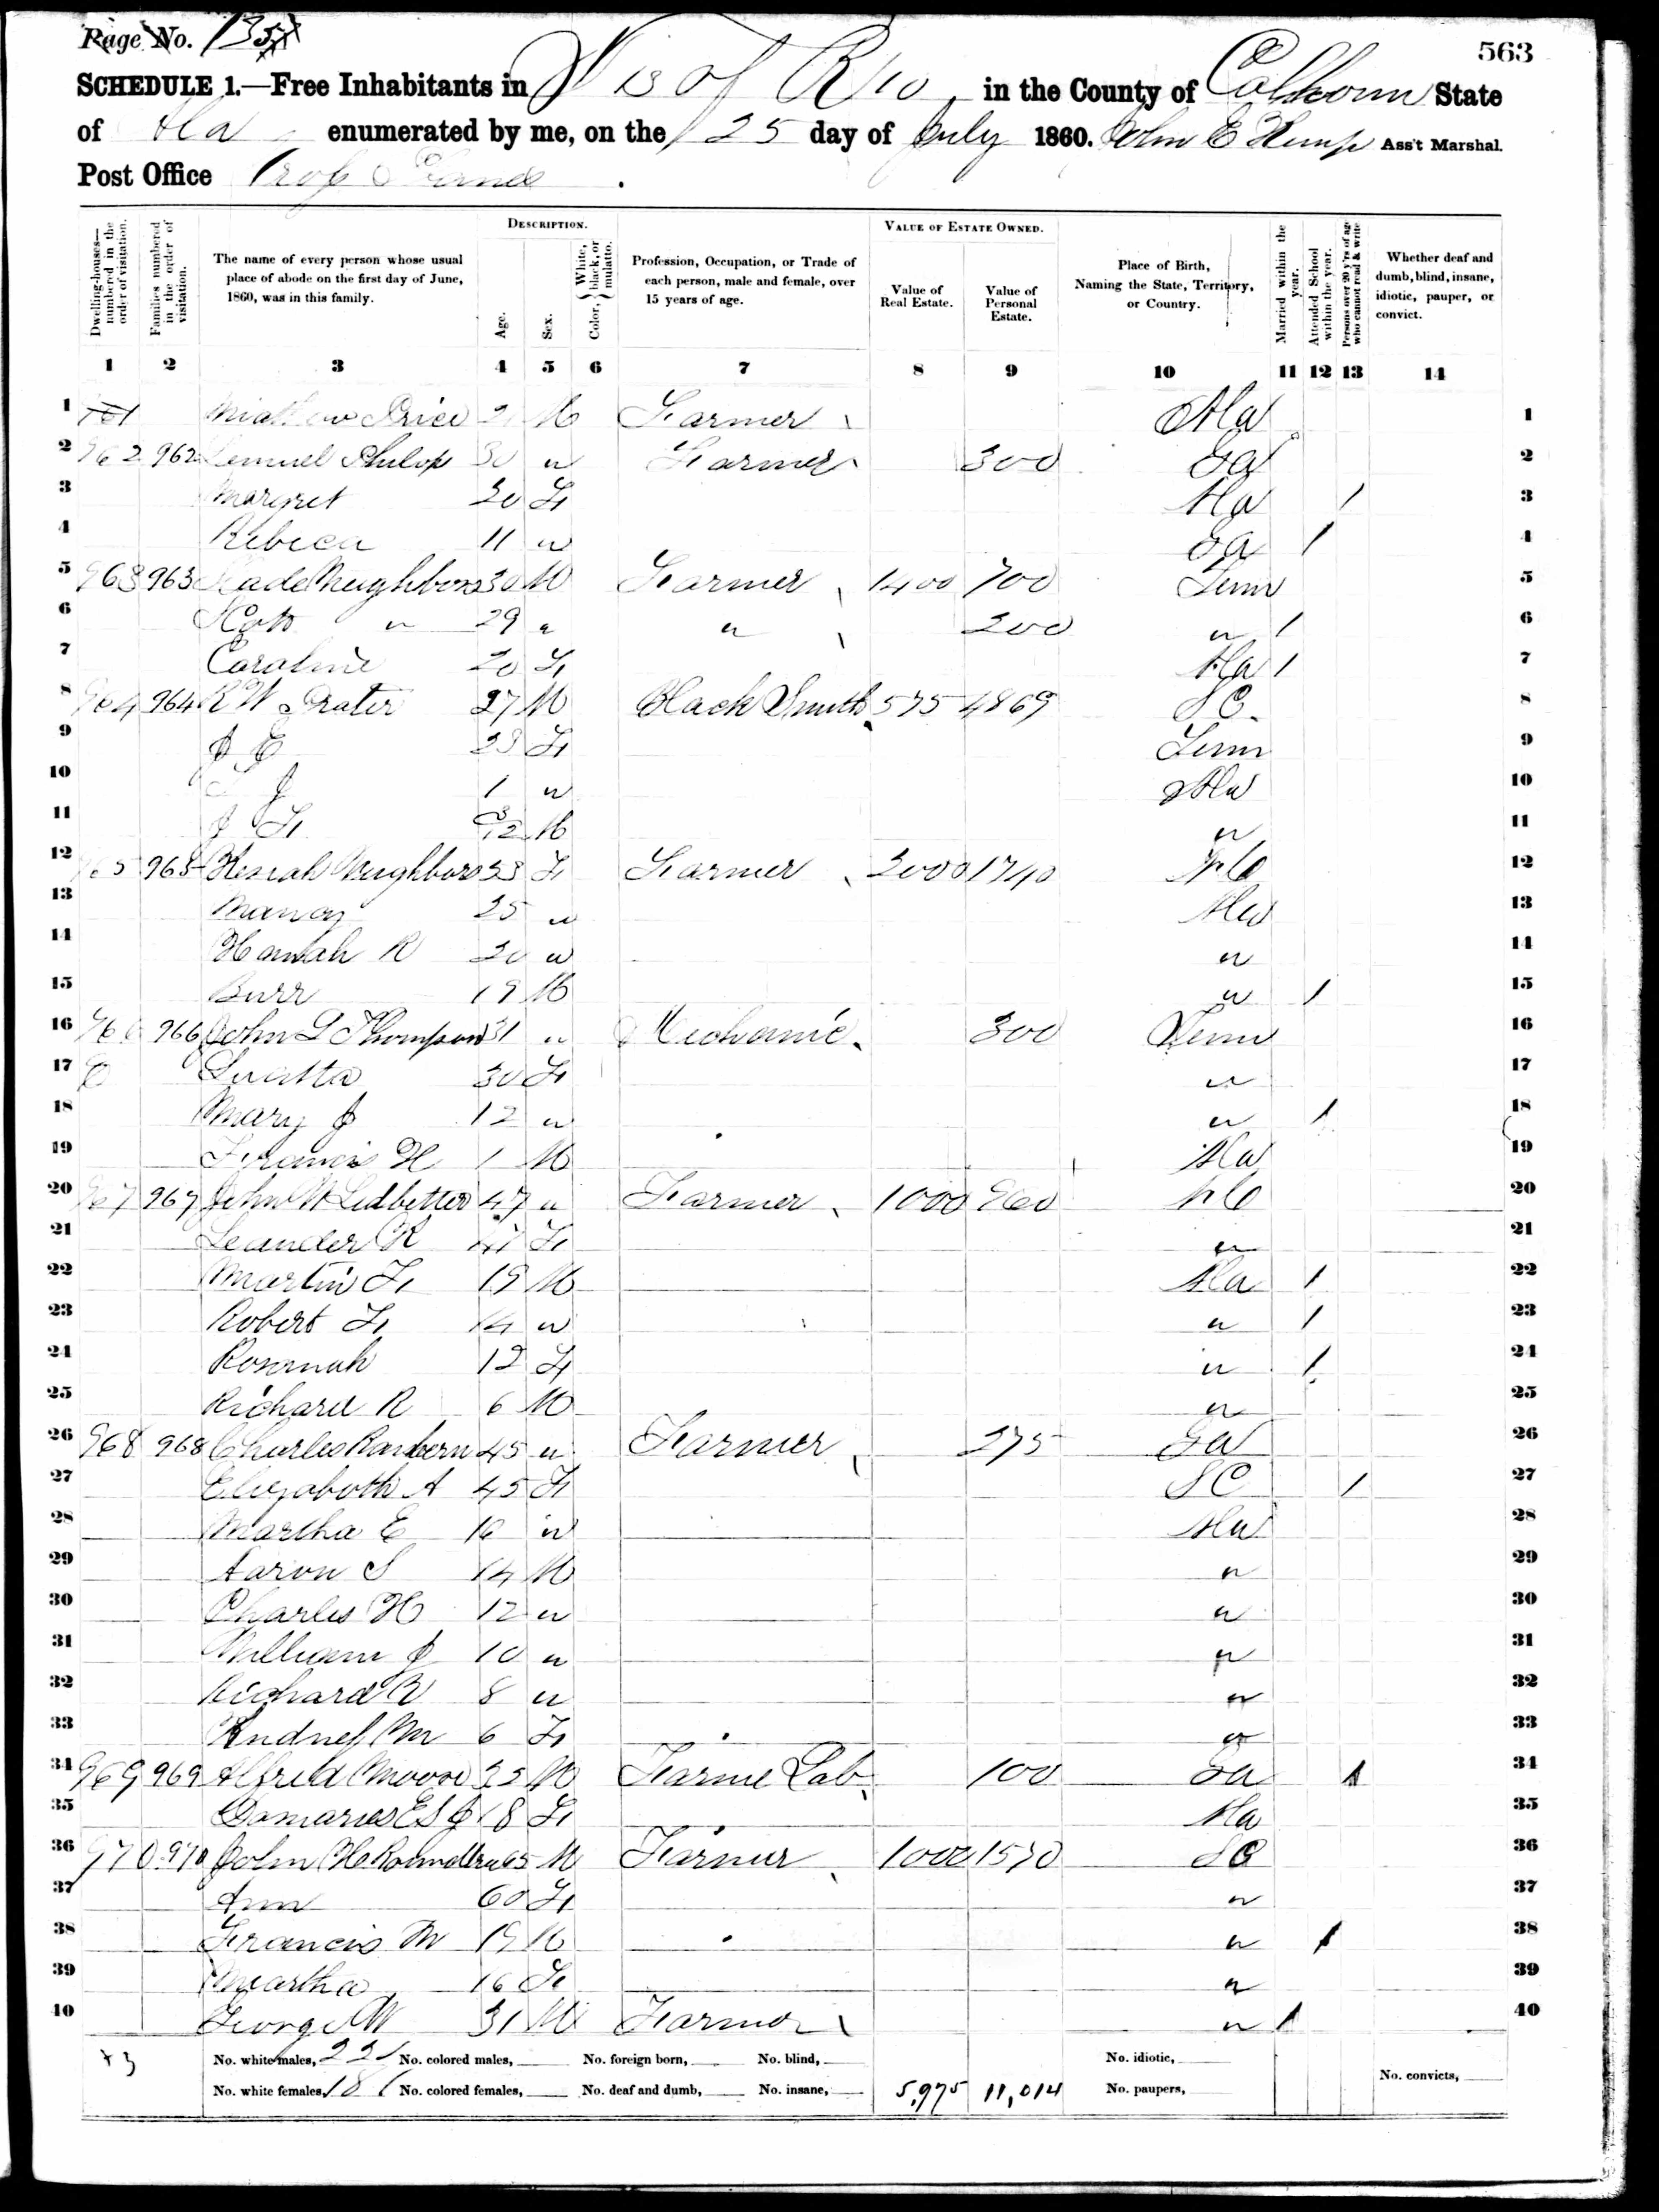 Page No. 135
563
SCHEDULE 1.—Free Inhabitants in in the County of Calhoun State
of Ala enumerated by me, on the 25 day of July 1860. John E Ass't Marshal.
Post Office
Dwelling-houses—numbered in the order of visitation.
Families numbered in the order of visitation.
The name of every person whose usual place of abode on the first day of June, 1860, was in this family.
DESCRIPTION.
Age.
Sex.
Color, White, black, or mulatto.
Profession, Occupation, or Trade of each person, male and female, over 15 years of age.
VALUE OF ESTATE OWNED.
Value of Real Estate.
Value of Personal Estate.
Place of Birth, Naming the State, Territory, or Country.
Married within the year.
Attended School within the year.
Persons over 20 y'rs of age who cannot read & write
Whether deaf and dumb, blind, insane, idiotic, pauper, or convict.
1 2 3 4 5 6 7 8 9 10 11 12 13 14
1 Price M Farmer Ala 1
2 962 962 Lemuel 30 " Farmer 300 Ga 2
3 Margret 20 F Ala / 3
4 Rebeca 11 " Ga / 4
5 963 963 Neighbors 30 M Farmer 1400 700 Tenn 5
6 " 29 " " 200 " / 6
7 Caroline 20 F Ala / 7
8 964 964 R W Prater 27 M Black Smith 575 4869 SC 8
9 J E 23 F Tenn 9
10 J 1 " Ala 10
11 J F M " 11
12 965 965 Neighbors 53 F Farmer 2000 1740 NC 12
13 25 " Ala 13
14 Hannah R 20 " " 14
15 Burr 19 M " / 15
16 966 966 John L Thompson 31 " Mechanic 300 Tenn 16
17 30 F " 17
18 Mary J 12 " " / 18
19 Francis H 1 M Ala 19
20 967 967 John W Ledbetter 47 " Farmer 1000 960 NC 20
21 Leander R 41 F " 21
22 Martin F 19 M Ala / 22
23 Robert F 14 " " / 23
24 Rosannah 12 F " / 24
25 Richard R 6 M " 25
26 968 968 Charles 45 " Farmer 275 Ga 26
27 Elizabeth A 45 F SC / 27
28 Martha E 16 " Ala 28
29 Aaron S 14 M " 29
30 Charles H 12 " " 30
31 William J 10 " " 31
32 Richard 8 " " 32
33 M 6 F " 33
34 969 969 Alfred Moore 25 M Farme Lab 100 Ga / 34
35 Damaries E S J 18 F Ala 35
36 970 970 John H 65 M Farmer 1000 1570 SC 36
37 Ann 60 F " 37
38 Francis M 19 M " / 38
39 Martha 16 F " 39
40 George W 31 M Farmer " / 40
No. white males, 22 No. colored males, No. foreign born, No. blind, No. idiotic, No. convicts,
No. white females, 18 No. colored females, No. deaf and dumb, No. insane, 5,975 11,014 No. paupers,